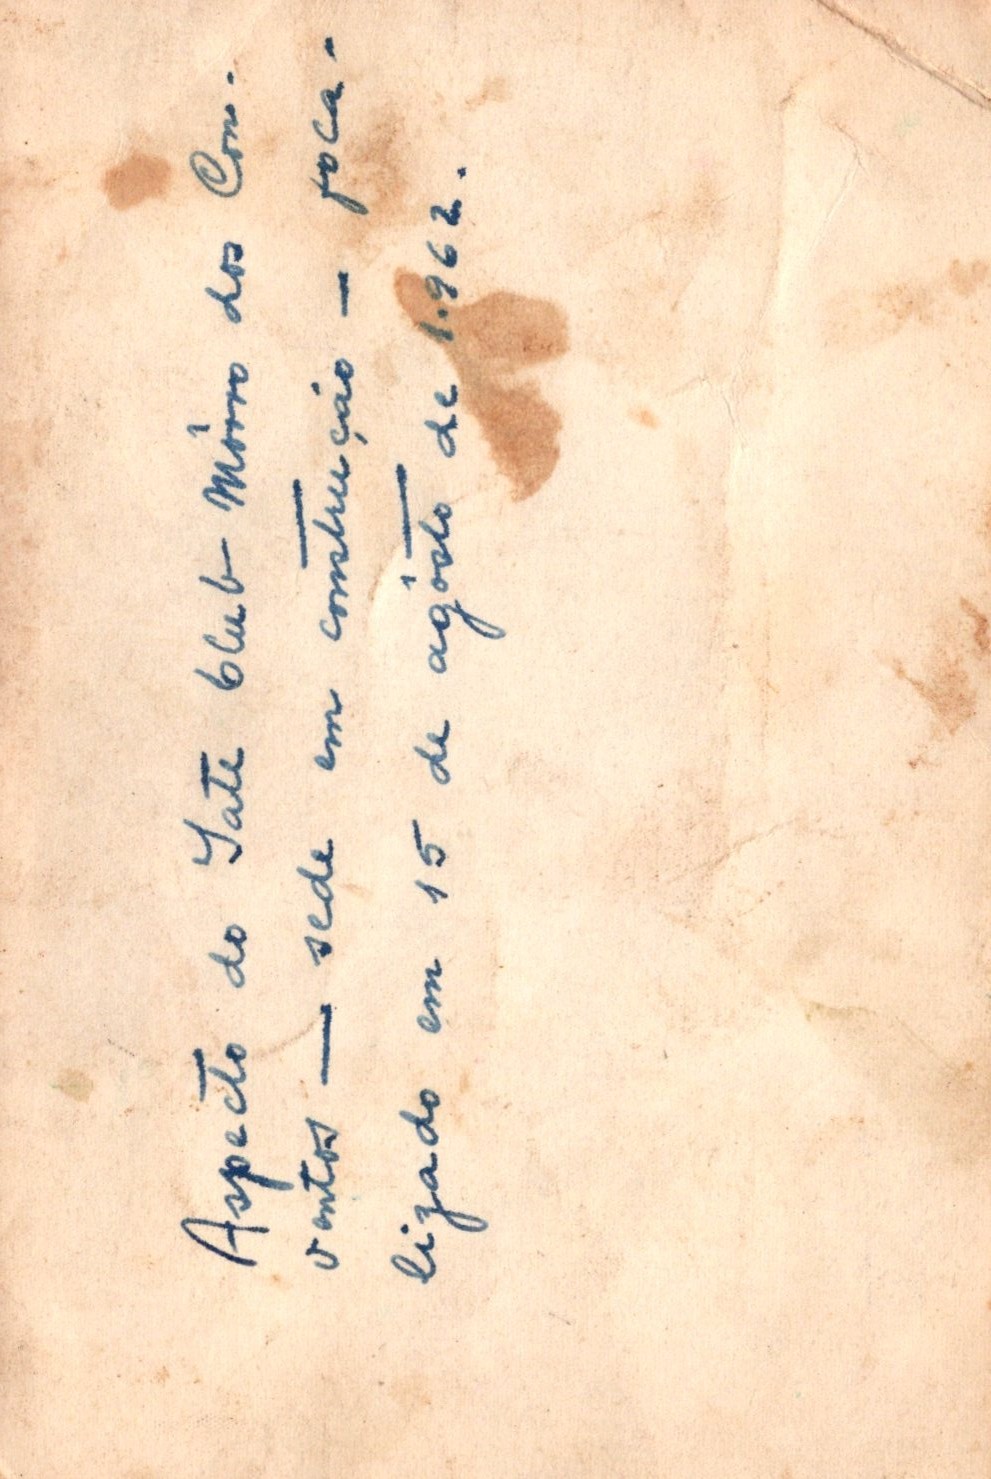 Aspecto do Iate Club - Môrro dos Con-
ventos — sede em construção — foca-
lizado em 15 de agôsto de 1.962.